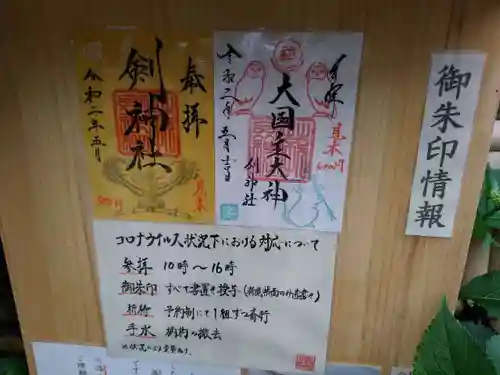 奉拝
剣神社
令和二年五月
見本
大国主大神
令和二年五月吉日
剣神社
見本
御朱印情報
コロナウイルス状況下における対応について
参拝 10時〜16時
御朱印 すべて書置き授与(新規帳面のみ直書き)
祈祷 予約制にて1組ずつ斎行
手水 柄杓の撤去
※状況により変更あり。